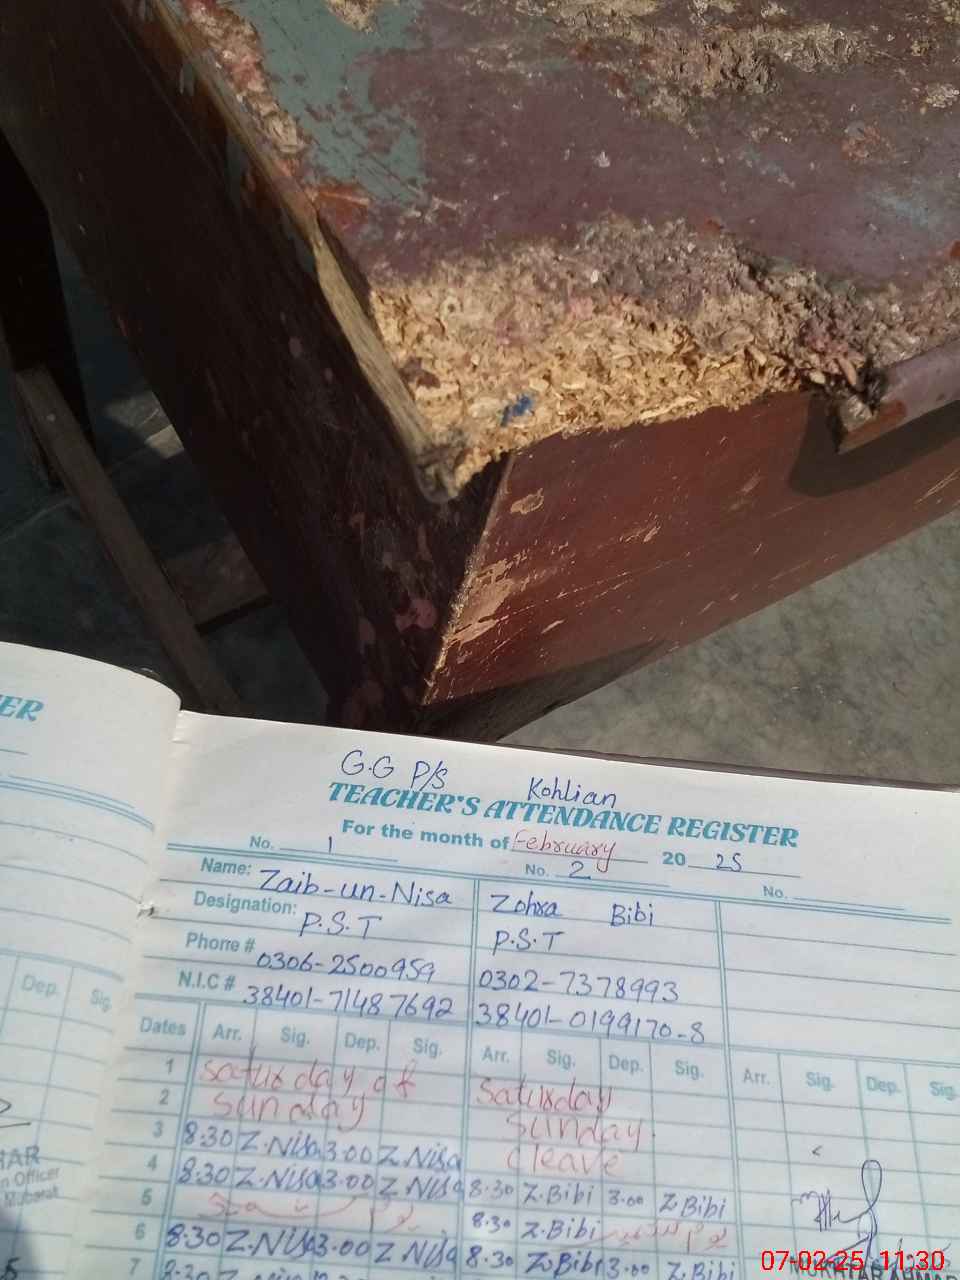 ER
G.G P/S Kohlian
TEACHER'S ATTENDANCE REGISTER
For the month of February 20 25
No. 1 No. 2 No.
Name: Zaib-un-Nisa Zohra Bibi
Designation: P.S.T P.S.T
Phone # 0306-2500959 0302-7378993
N.I.C # 38401-7148 7692 38401-0199170-8
Dep. Sig.
Dates Arr. Sig. Dep. Sig. Arr. Sig. Dep. Sig. Arr. Sig. Dep. Sig.
1 Saturday of Saturday
2 Sunday Sunday
3 8.30 Z.Nisa 3.00 Z.Nisa cleave
4 8.30 Z.Nisa 3.00 Z Nisa 8.30 Z.Bibi 3.00 Z.Bibi
5 8.30 Z.Bibi
6 8.30 Z.Nisa 3.00 Z Nisa 8.30 Z.Bibi 3.00 Z.Bibi
7
n Officer
Mubarat
07-02-25 11:30